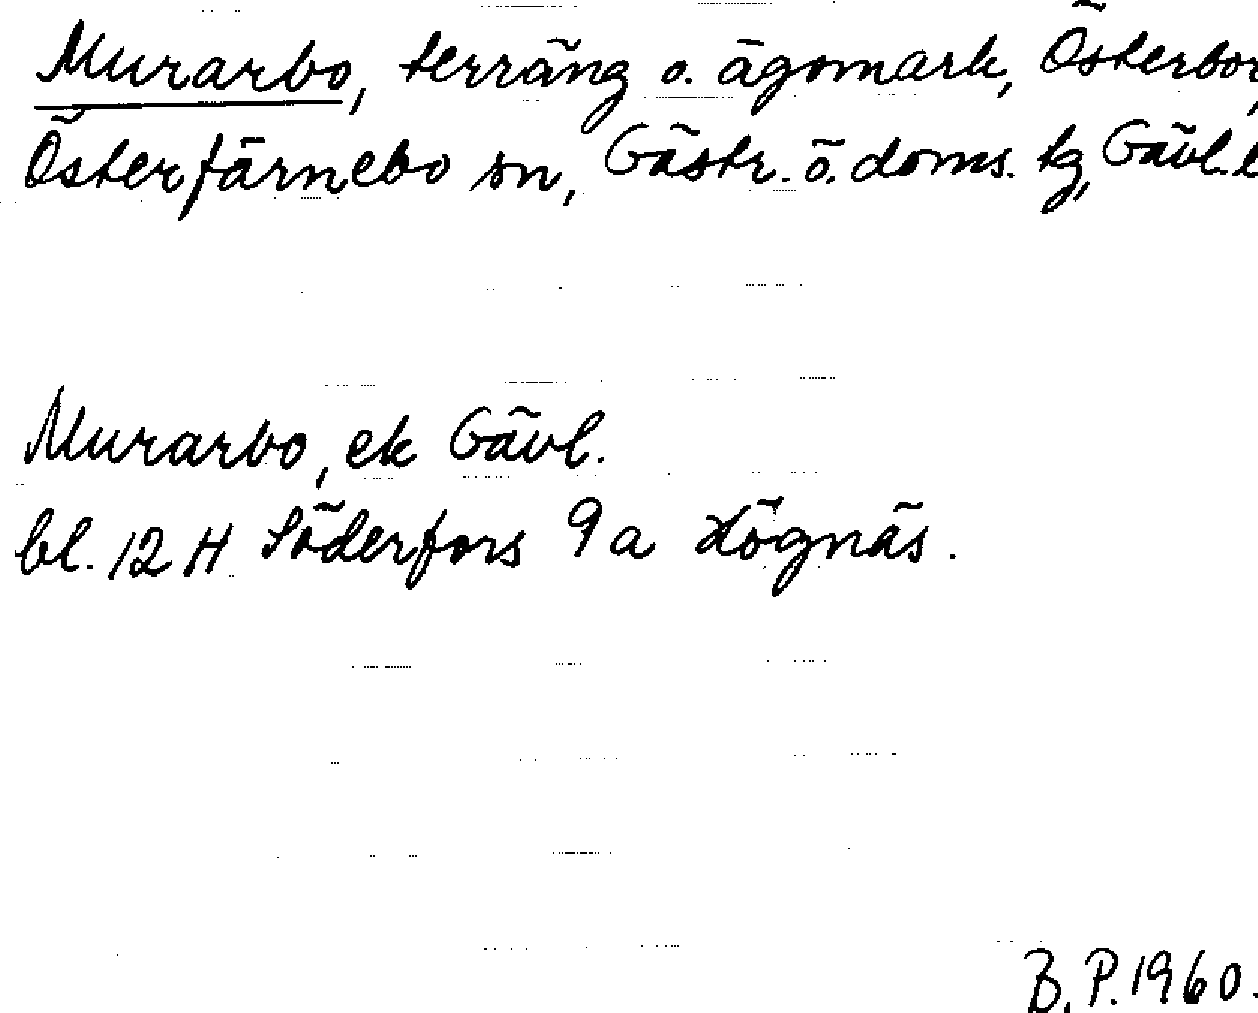 Murarbo, terräng o. ägomark, Österbor,
Österfärnebo sn, Gästr. ö. doms. tg, Gävl. l
Murarbo, ek Gävl.
bl. 12 H Söderfors 9 a Lögnäs.
B. P. 1960.